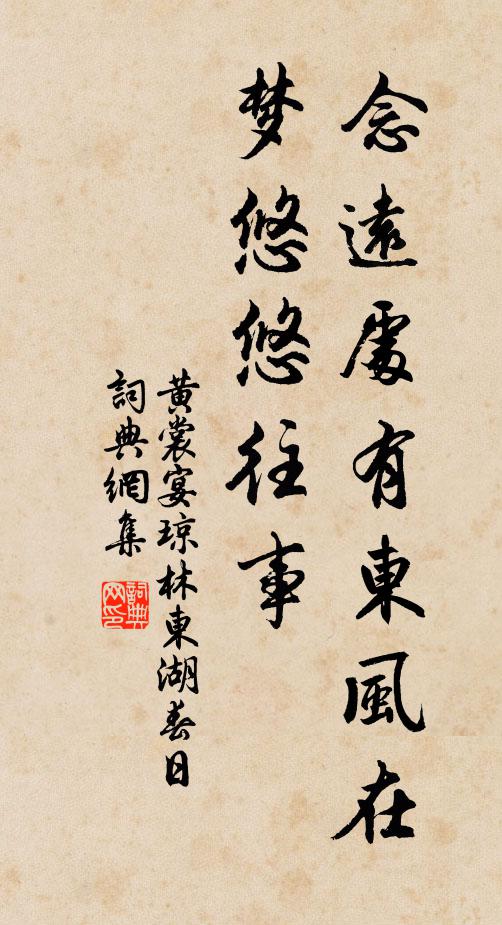 念遠處有東風在
梦悠悠往事
黄裳宴琼林東湖春日
詞典網集
詞典网印